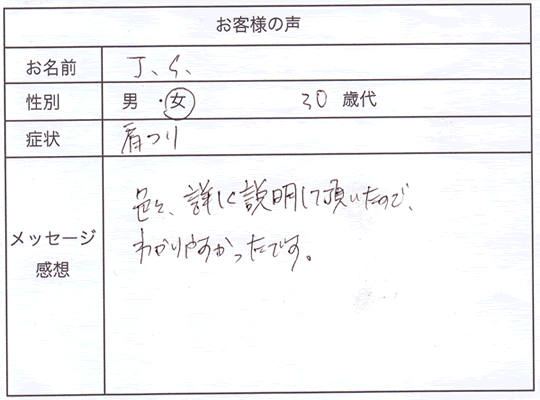 お客様の声
お名前 J、S、
性別 男・女 30 歳代
症状 肩コリ
メッセージ
感想
色々、詳しく説明して頂いたので、
わかりやすかったです。